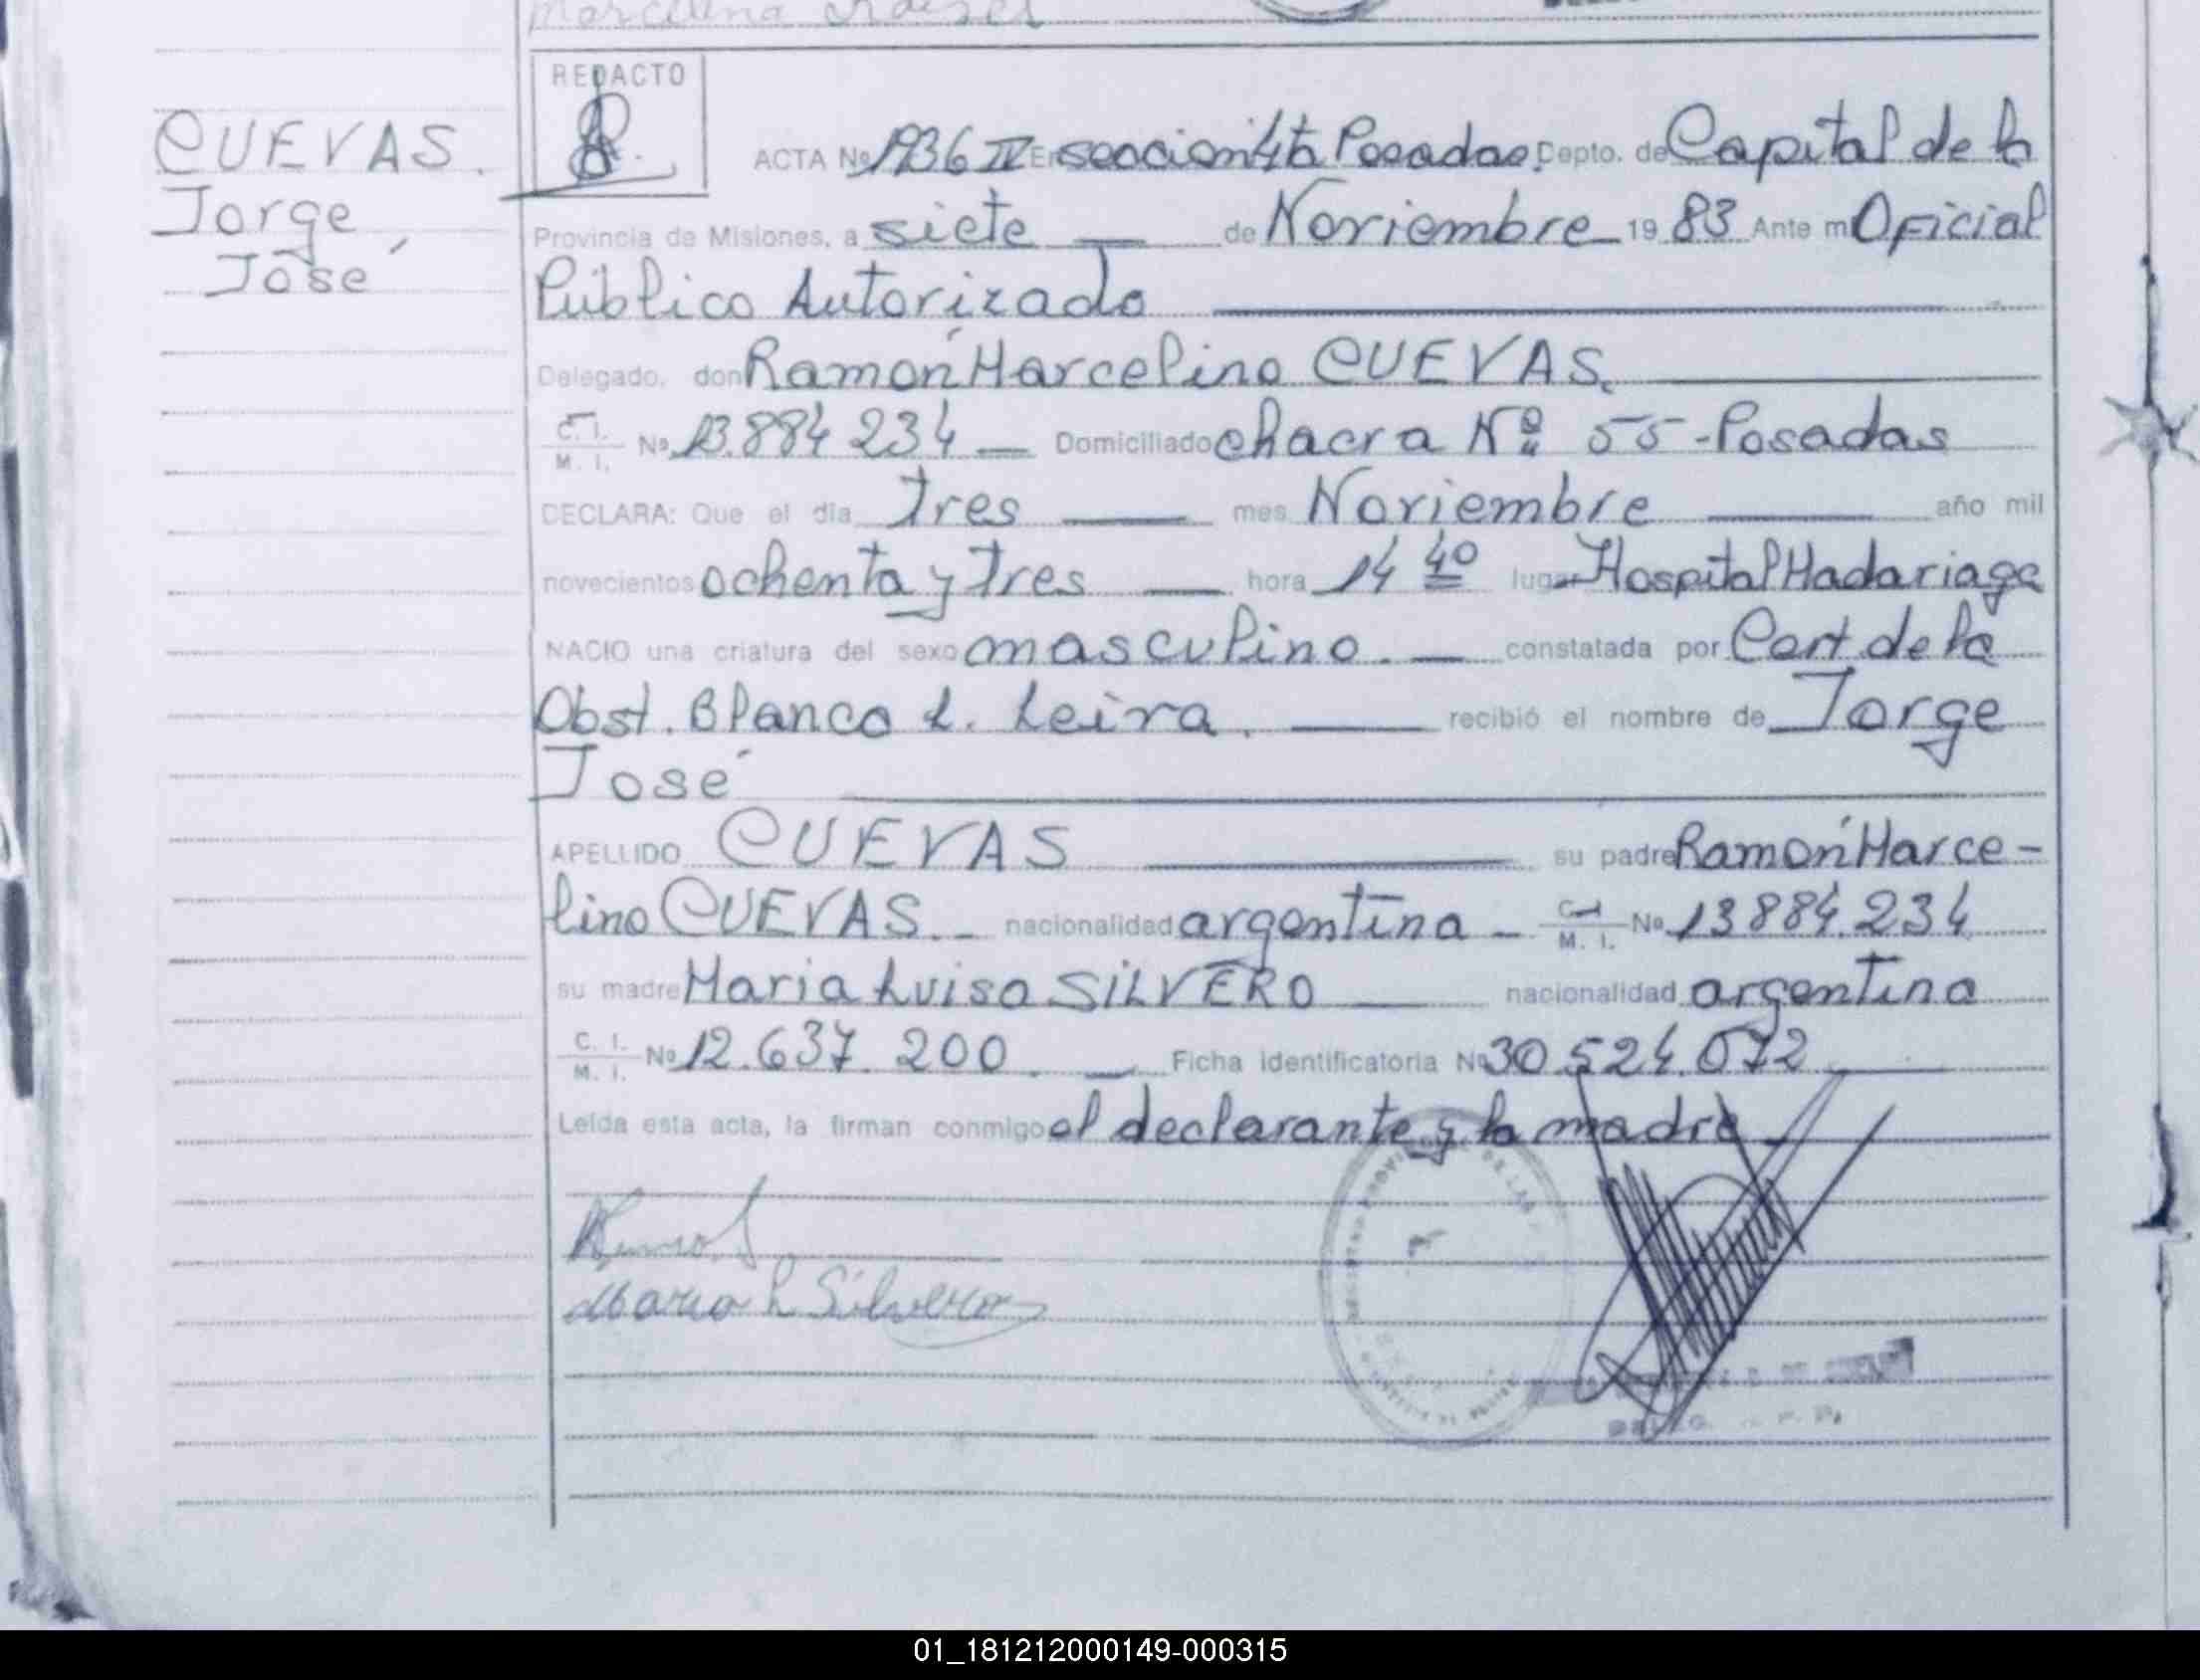 CUEVAS.
Jorge
José
REDACTO
ACTA Nº 1936 IV En seccion 4ta Posadas. Depto. de Capital de la
Provincia de Misiones, a siete — de Noviembre 1983 Ante mi Oficial
Público Autorizado
Delegado, don Ramón Marcelino CUEVAS.
C. I. / M. I. Nº 13.884 234 — Domiciliado chacra Nº 55 - Posadas
DECLARA: Que el día tres — mes Noviembre — año mil
novecientos ochenta y tres — hora 14 40 lugar Hospital Madariaga
NACIO una criatura del sexo masculino. — constatada por Cert de la
Obst. Blanca L. Leiva. — recibió el nombre de Jorge
José
APELLIDO CUEVAS — su padre Ramón Marce-
lino CUEVAS. - nacionalidad argentina - C. I. / M. I. Nº 13884.234
su madre Maria Luisa SILVERO — nacionalidad argentina
C. I. / M. I. Nº 12.637.200. — Ficha identificatoria Nº 30.524.072
Leída esta acta, la firman conmigo el declarante y la madre
Maria L Silvero
01_181212000149-000315